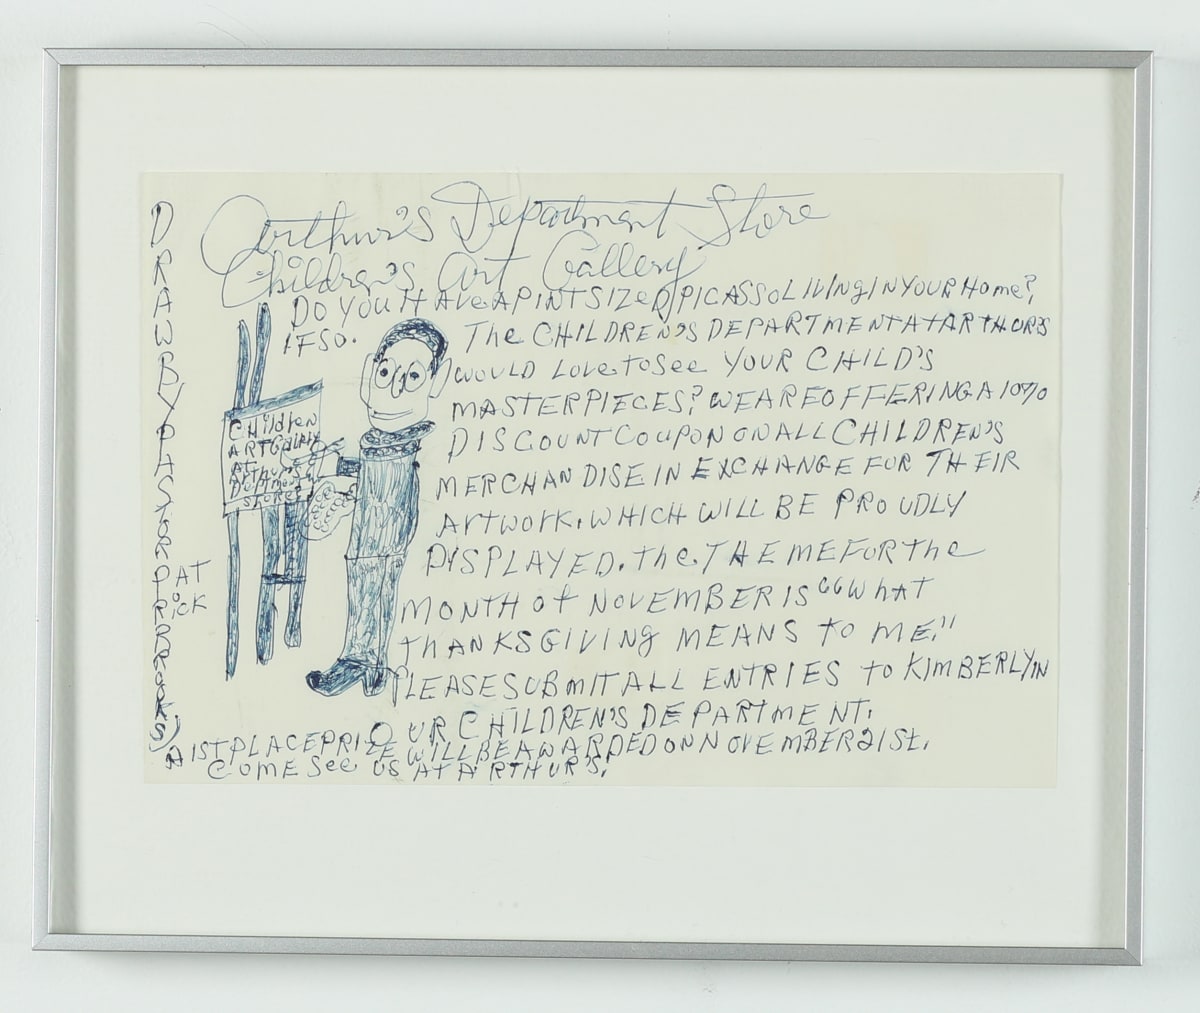 Arthur's Department Store
Children's Art Gallery
DO YOU HAVE A PINT SIZED PICASSO LIVING IN YOUR HOME?,
IF SO. The CHILDREN'S DEPARTMENT AT ARTHUR'S
WOULD Love to See YOUR CHILD'S
MASTERPIECES? WE ARE OFFERING A 10%
DISCOUNT COUPON ON ALL CHILDREN'S
MERCHANDISE IN EXCHANGE FOR THEIR
ARTWORK. WHICH WILL BE PROUDLY
DISPLAYED. The THEME FOR The
MONTH of NOVEMBER IS "What
THANKSGIVING MEANS to ME."
PLEASE SUBMIT ALL ENTRIES to KIMBERLY IN
OUR CHILDREN'S DEPARTMENT.
A 1ST PLACE PRIZE WILL BE AWARDED ON NOVEMBER 21st.
COME See US AT ARTHUR'S.
CHildren
ART Gallery
AT
Arthur's
Department
STORE
DRAW BY PASTOR
AT